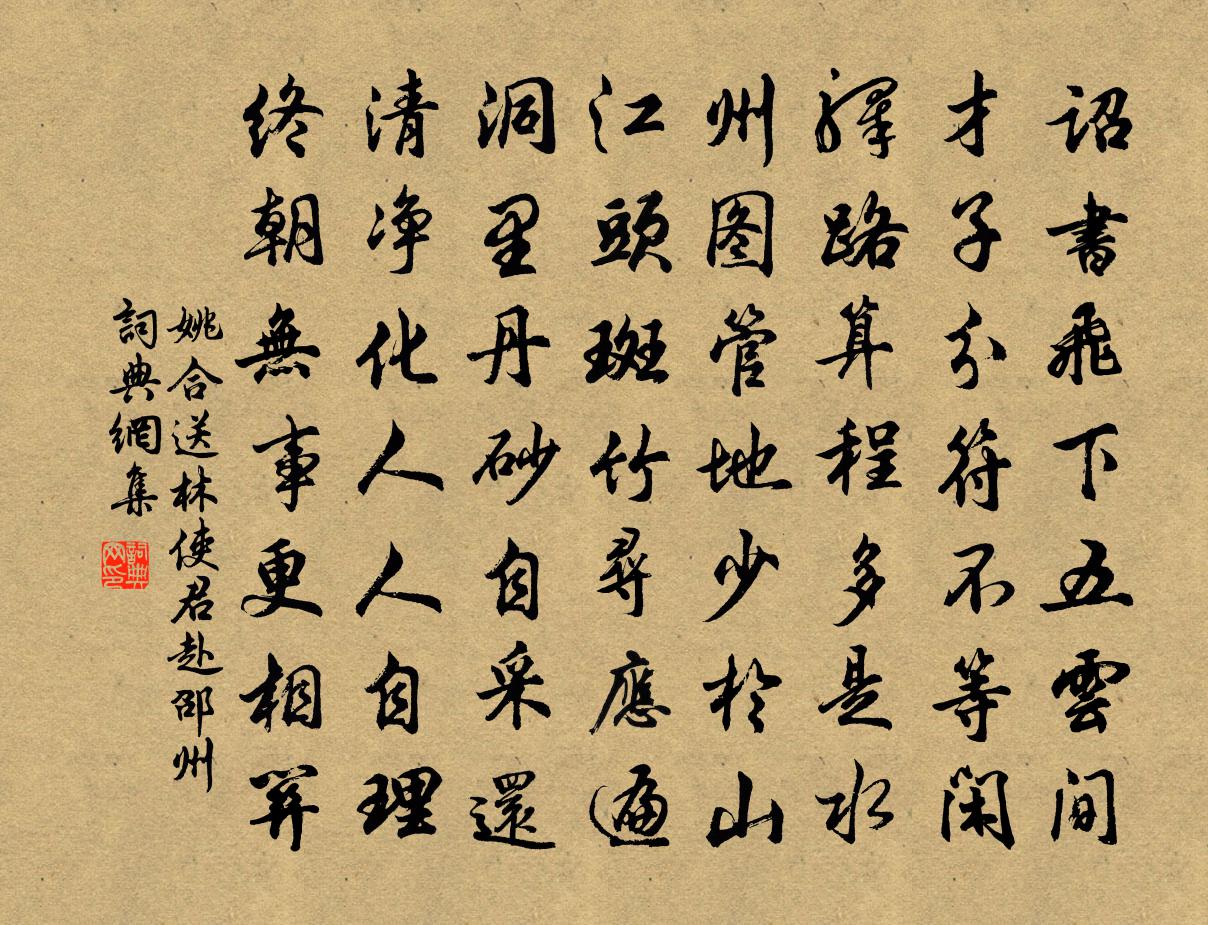 詔書飛下五雲間
才子分符不等閑
驛路算程多是水
州图管地少於山
江頭斑竹尋應遍
洞里丹砂自采還
清净化人人自理
終朝無事更相關
姚合送林使君赴邵州
詞典網集
詞典网印